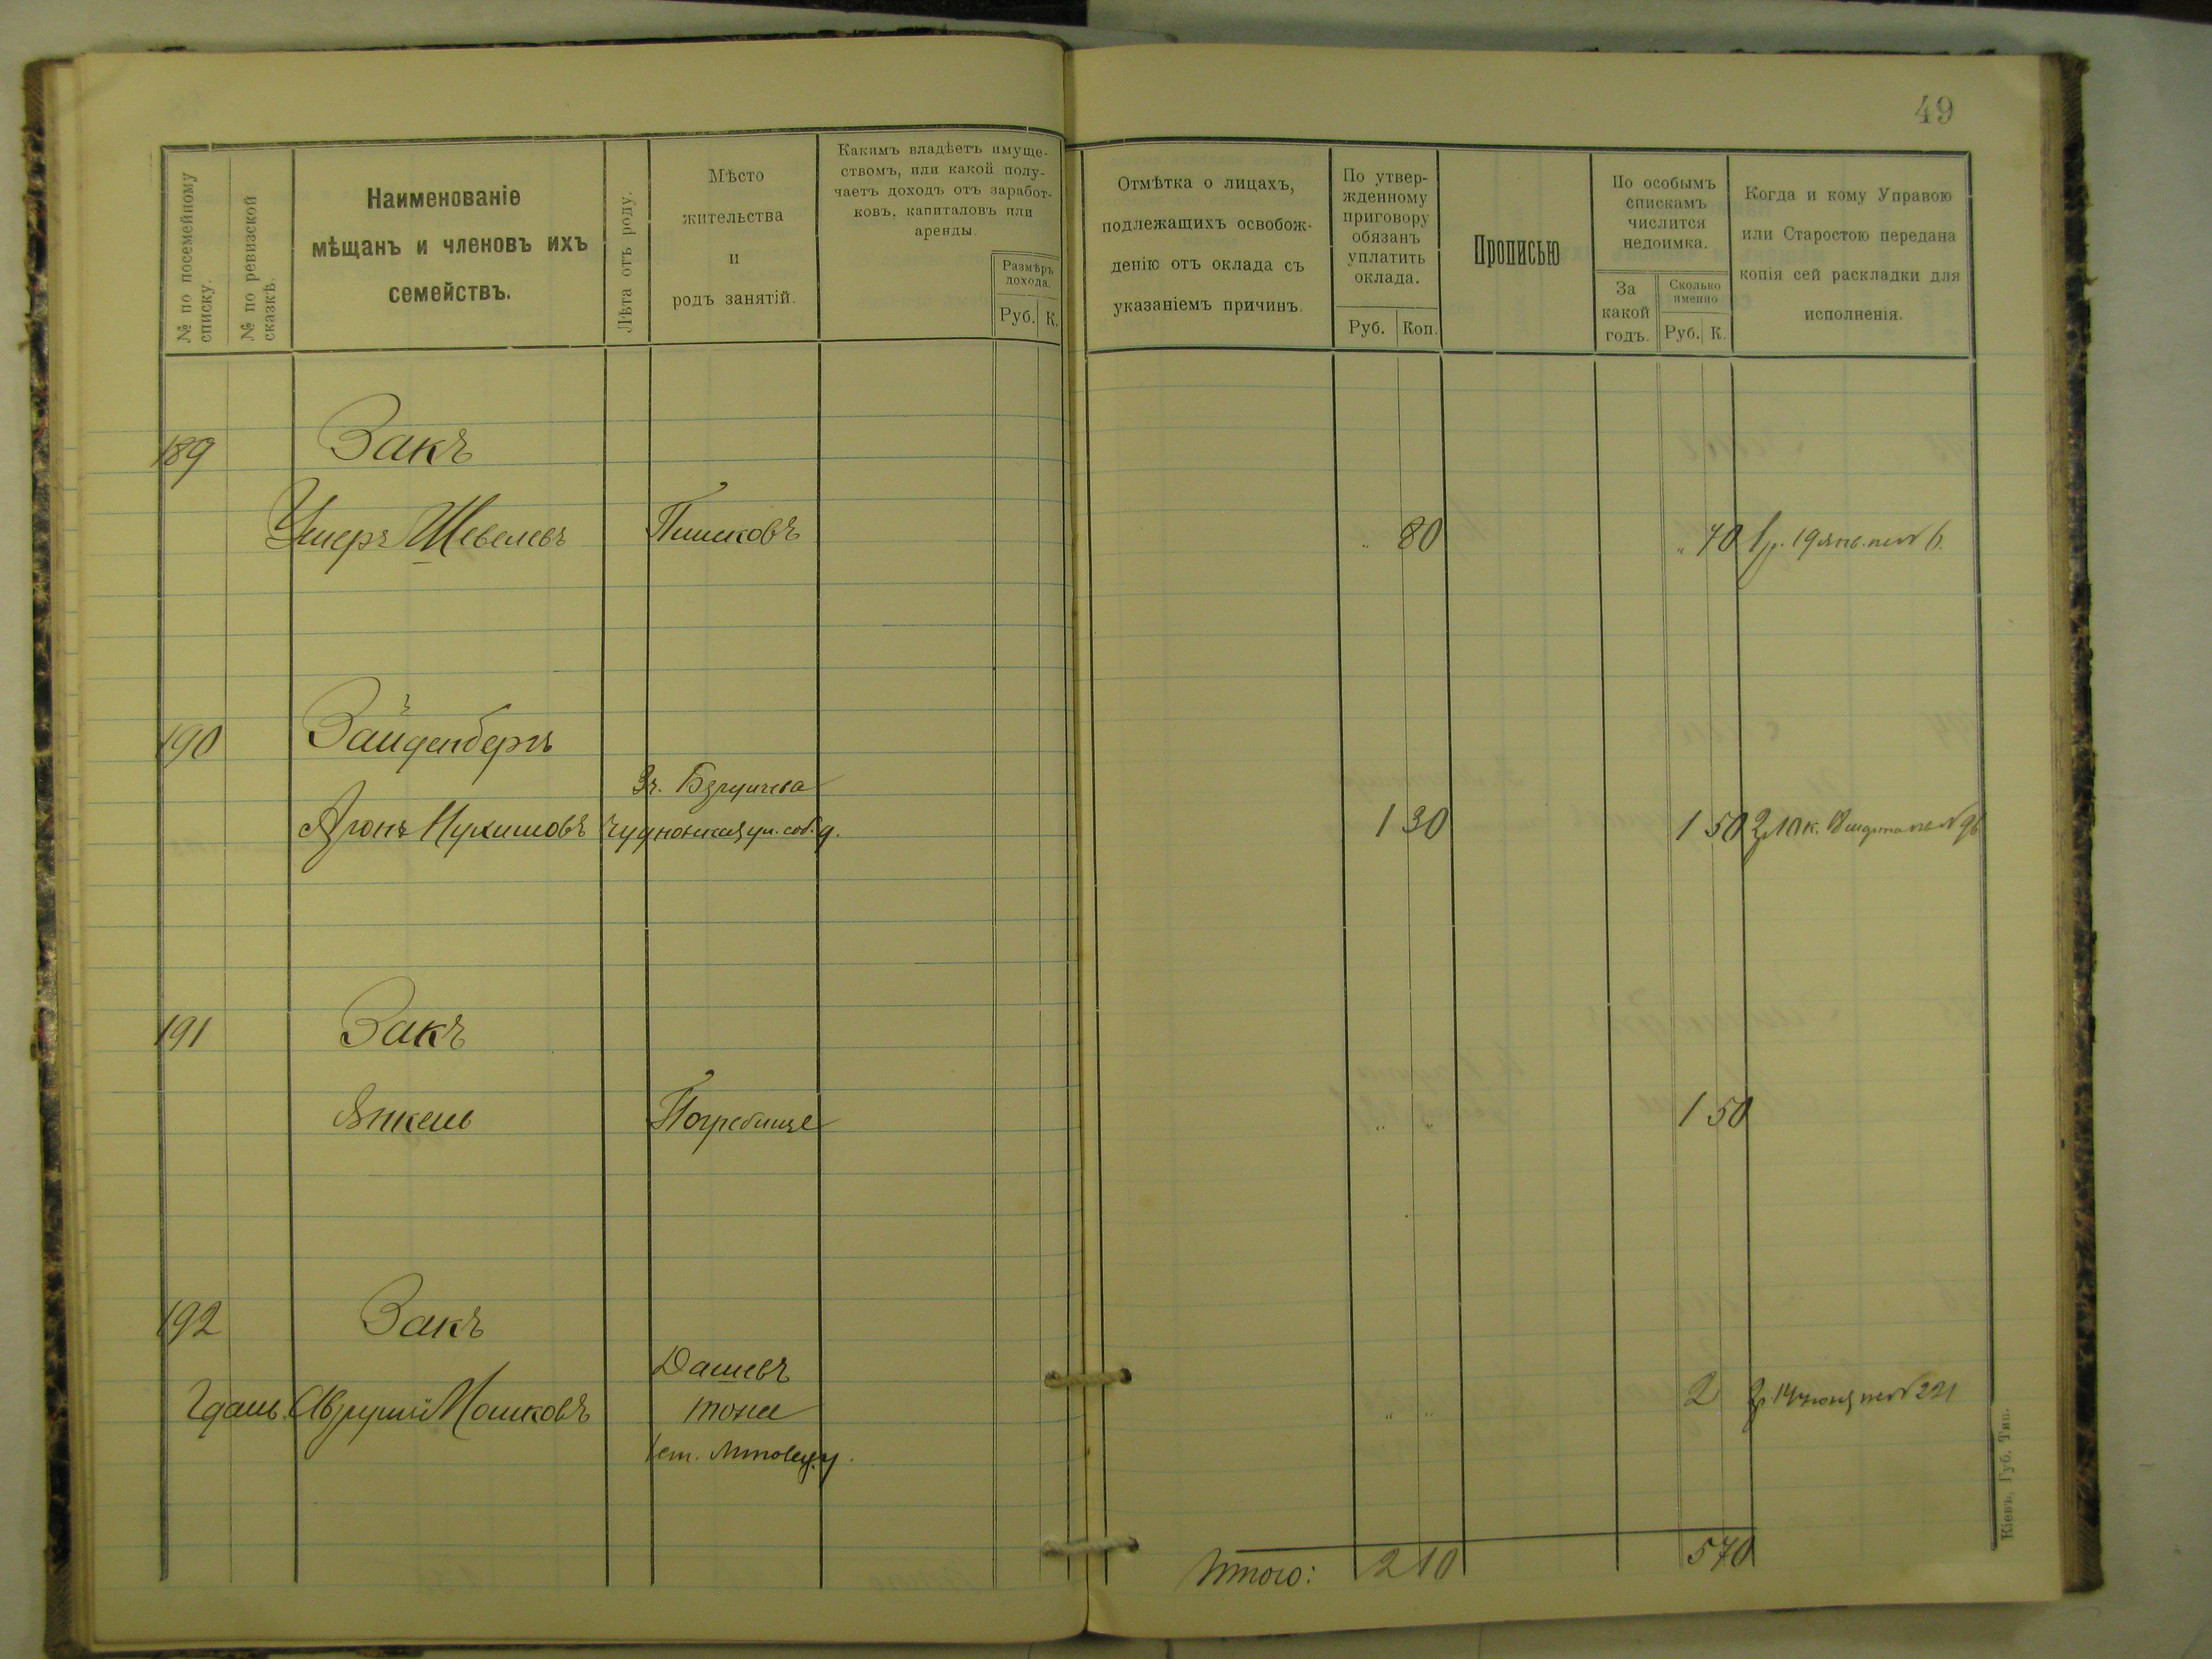 49
№ по посемейному списку.
№ по ревизской сказкѣ.
Наименованіе
мѣщанъ и членовъ ихъ
семействъ.
Лѣта отъ роду.
Мѣсто
жительства
и
родъ занятій.
Какимъ владѣетъ имуще-
ствомъ, или какой полу-
чаетъ доходъ отъ заработ-
ковъ, капиталовъ или
аренды.
Размѣръ
дохода.
Руб. К.
Отмѣтка о лицахъ,
подлежащихъ освобож-
денію отъ оклада съ
указаніемъ причинъ.
По утвер-
жденному
приговору
обязанъ
уплатить
оклада.
Руб. Коп.
Прописью
По особымъ
спискамъ
числится
недоимка.
За
какой
годъ.
Сколько
именно
Руб. К.
Когда и кому Управою
или Старостою передана
копія сей раскладки для
исполненія.
189 Закъ
Ушеръ Шевелевъ " 80 " 70
190 Зайденбергъ
Аронъ 1 30 1 50
191 Закъ
Янкель Погребище " " 1 50
192 Закъ
Дашевъ
Мошковъ тоже " " 2
Итого: 2 10 5 70
Кіевъ, Губ. Тип.